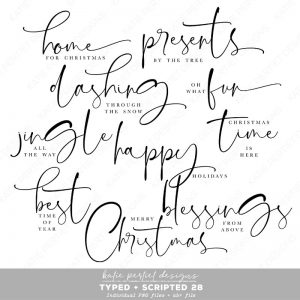 home
FOR CHRISTMAS
presents
BY THE TREE
dashing
THROUGH
THE SNOW
OH
WHAT
fun
jingle
ALL
THE WAY
happy
HOLIDAYS
CHRISTMAS
time
IS
HERE
best
TIME
OF YEAR
MERRY
Christmas
blessings
FROM
ABOVE
katie pertiet designs
TYPED + SCRIPTED 28
Individual PNG files + abr file